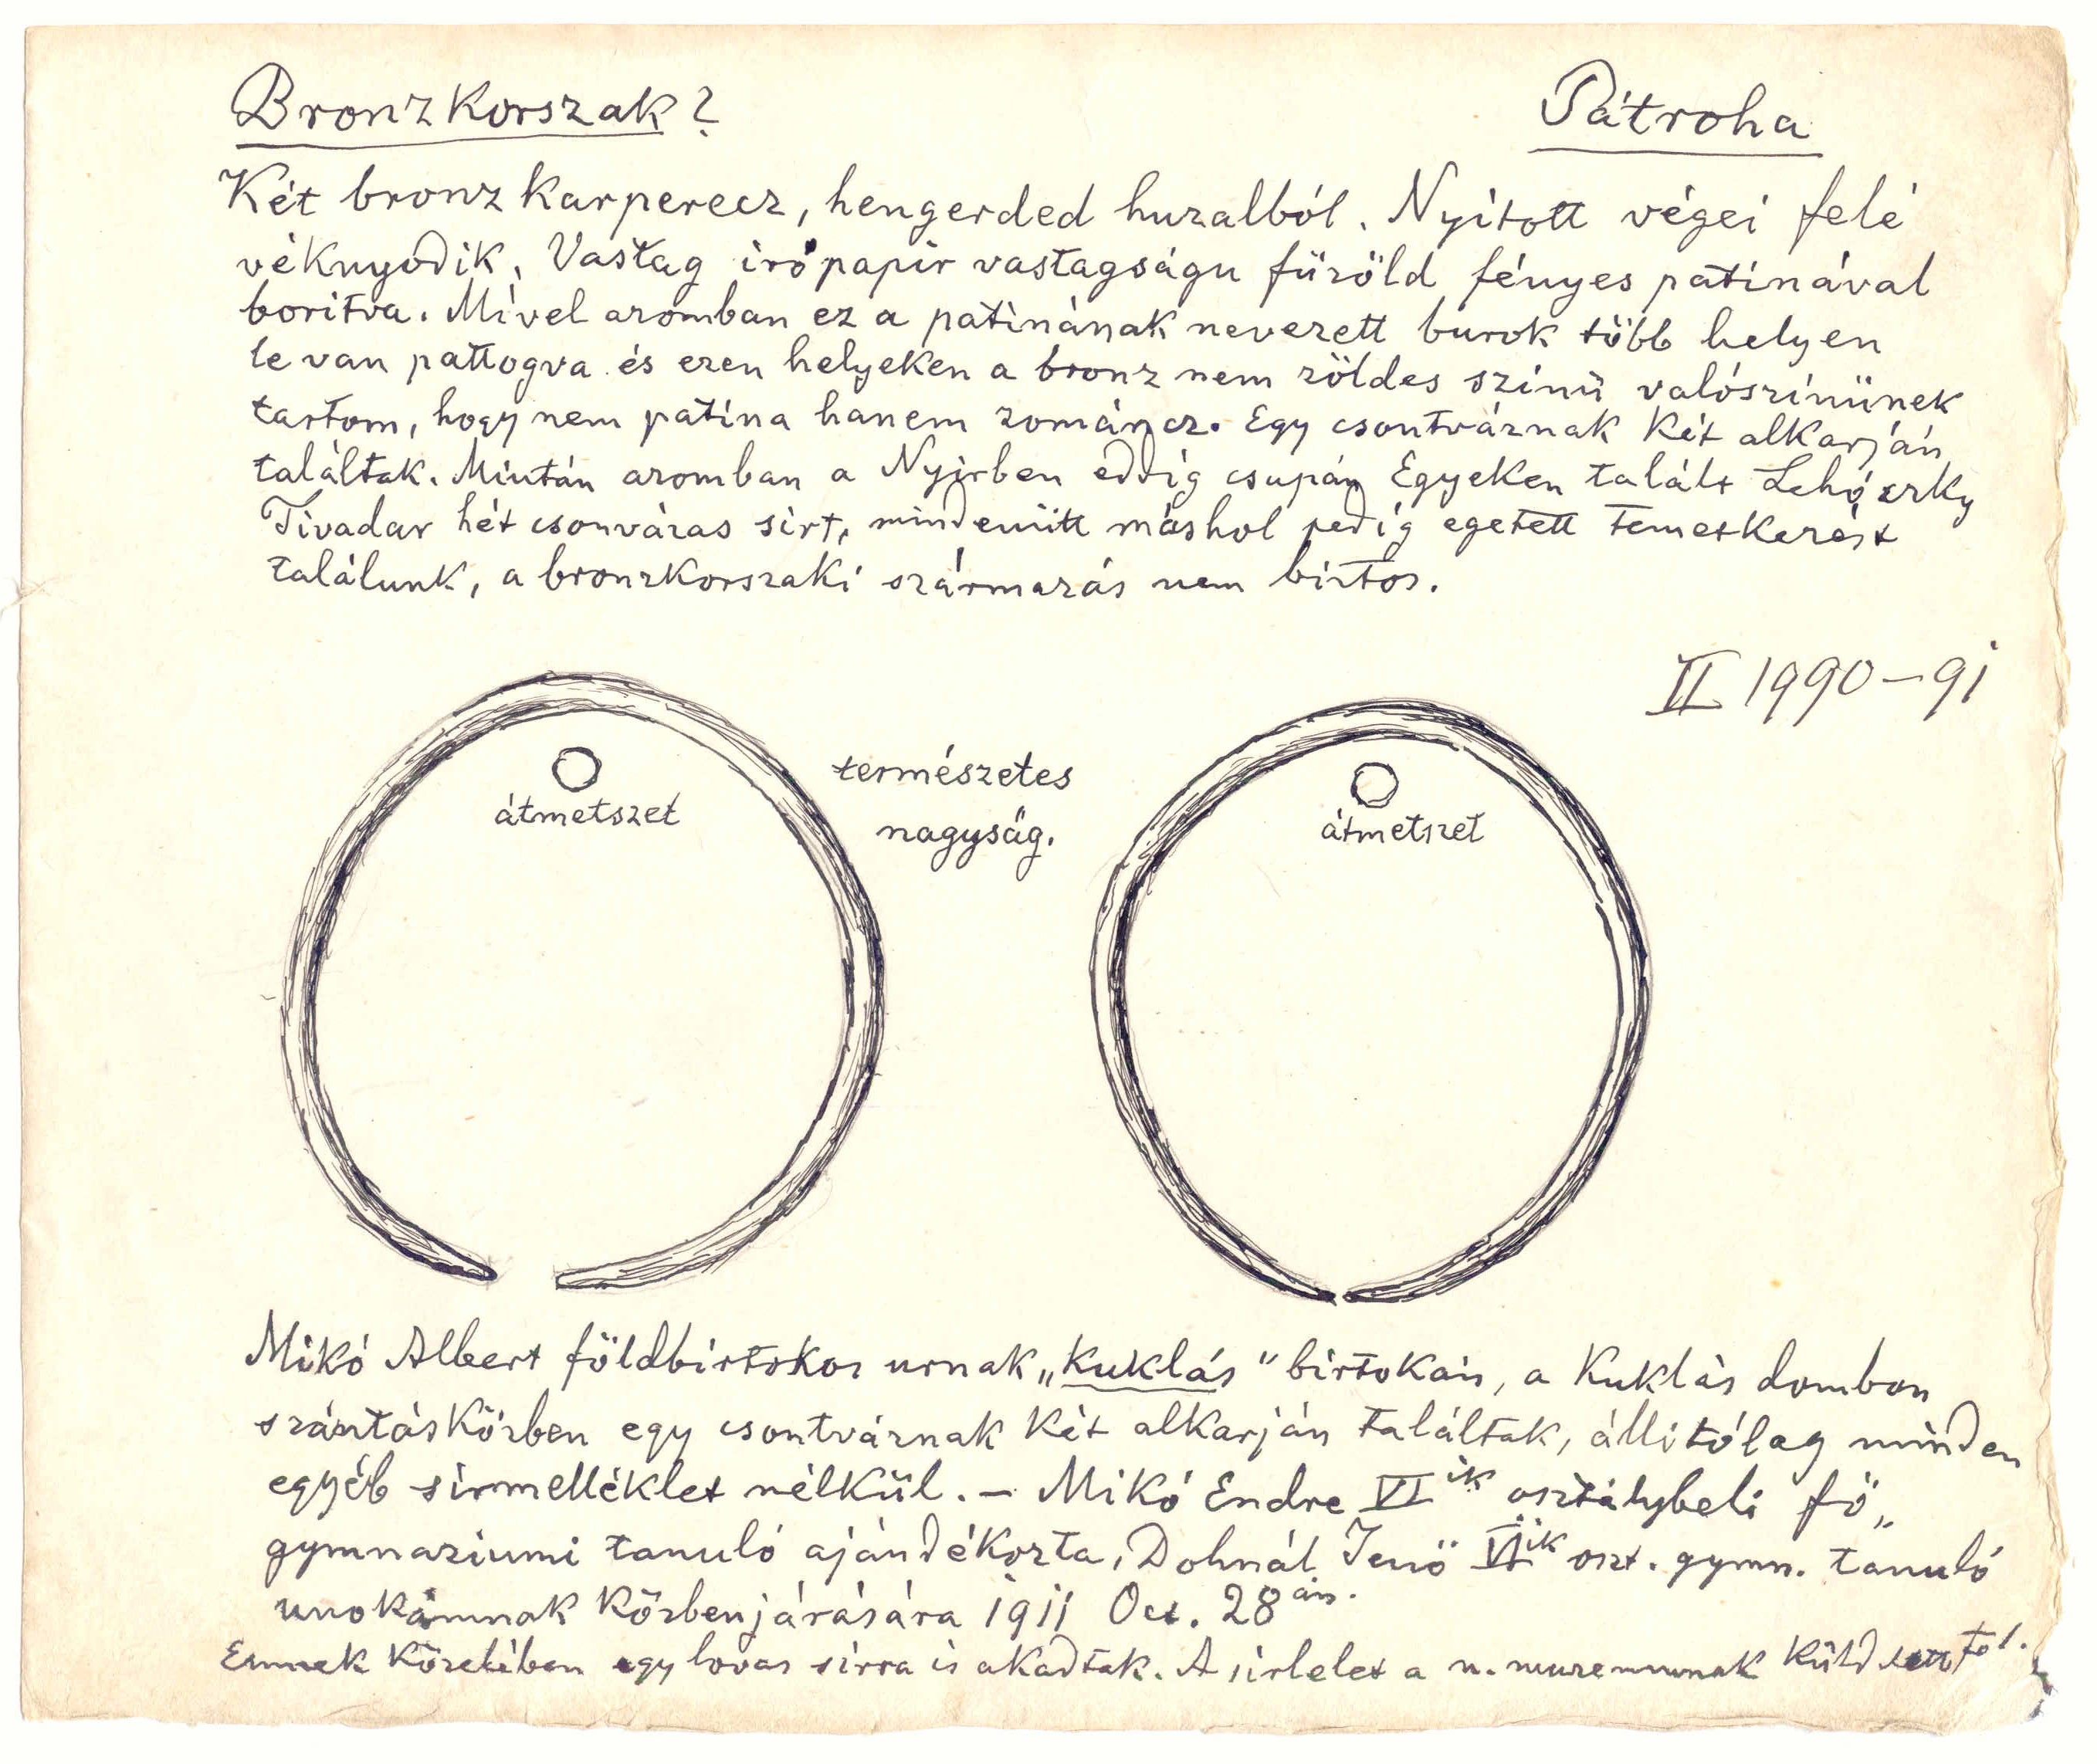 Bronzkorszak?
Pátroha
Két bronz karperecz, hengerded huzalból. Nyitott végei felé
véknyodik, Vastag irópapir vastagságu fűzöld fényes patinával
boritva. Mivel azomban ez a patinának nevezett burok több helyen
le van pattogva és ezen helyeken a bronz nem zöldes szinű valószinünek
tartom, hogy nem patina hanem zománcz. Egy csontváznak két alkarján
találtak. Miután azomban a Nyirben eddig csupán Egyeken talált Lehóczky
Tivadar hét csonvázas sirt, mindenütt máshol pedig egetett temetkezést
találunk, a bronzkorszaki származás nem biztos.
II 1990-91
természetes
nagyság.
átmetszet
átmetszet
Mikó Albert földbirtokos urnak „Kuklás" birtokán, a Kuklás dombon
szántásközben egy csontváznak két alkarján találtak, állitólag minden
egyéb sirmelléklet nélkül. - Mikó Endre VIik osztálybeli fő„
gymnaziumi tanuló ajándékozta, Dohnál Jenő VIik oszt. gymn. tanuló
unokámnak közbenjárására 1911 Oct. 28án.
Ennek közelében egy lovas sirra is akadtak. A sirlelet a n. muzeumnak